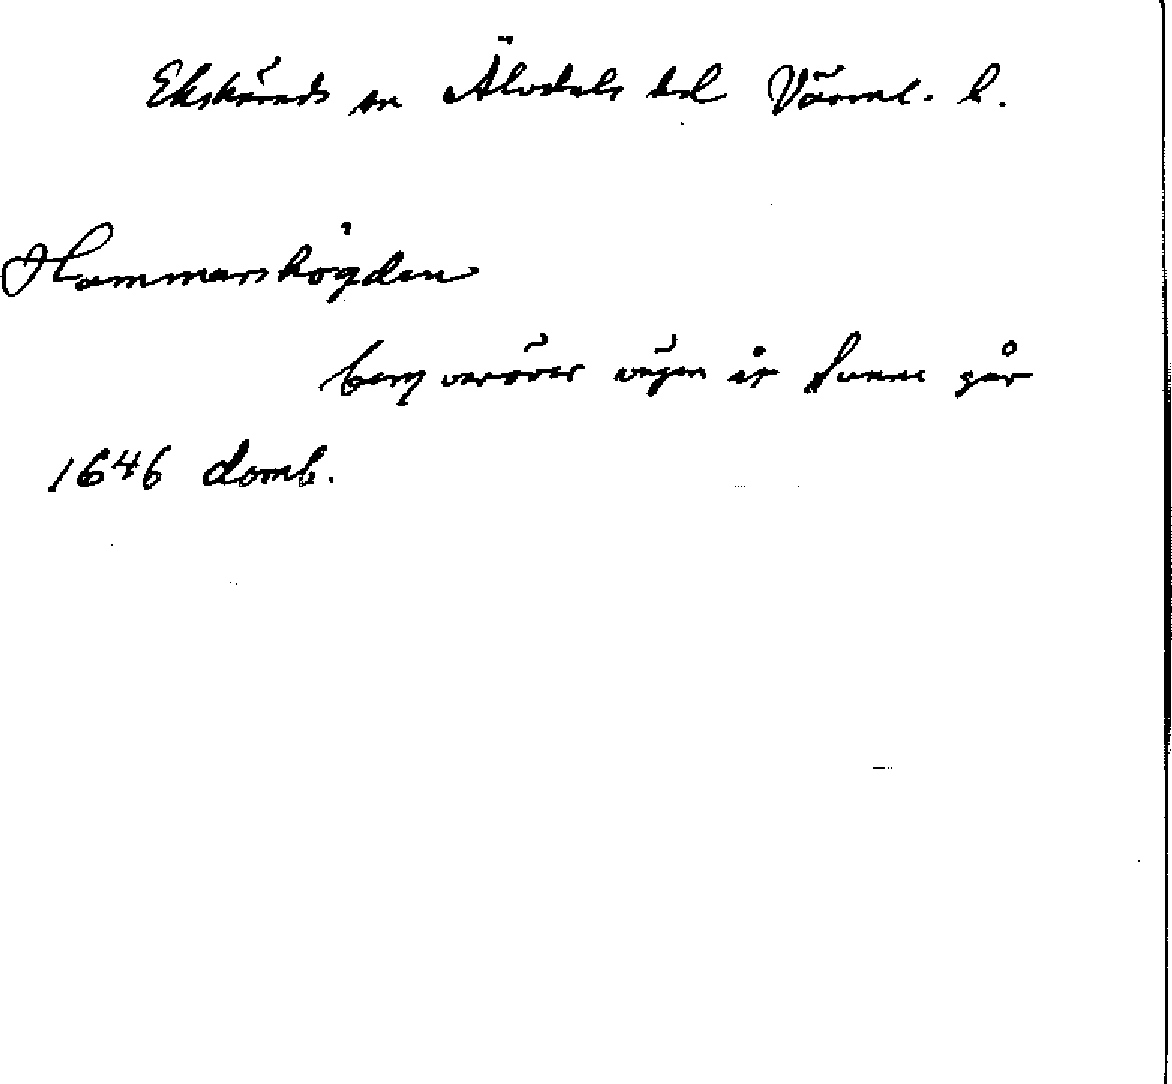 Ekshärads sn Älvdals hd Värml. l.
Hammarshögden
berg varöver vägen åt Sunne går
1646 domb.